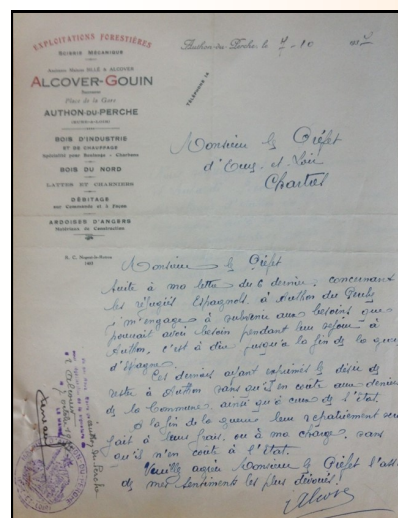 EXPLOITATIONS FORESTIÈRES
SCIERIE MÉCANIQUE
ALCOVER-GOUIN
Place de la Gare
AUTHON-DU-PERCHE
(EURE-&-LOIR)
BOIS D'INDUSTRIE
ET DE CHAUFFAGE
Spécialité pour Boulange - Charbons
BOIS DU NORD
LATTES ET CHARNIERS
DÉBITAGE
sur Commande et à Façon
ARDOISES D'ANGERS
Matériaux de Construction
Authon-du-Perche, le 7-10
TÉLÉPHONE 14
Monsieur le Préfet
d'Eure-et-Loir
Chartres
Monsieur le Préfet
Suite à ma lettre du 6 dernier, concernant
les réfugiés Espagnols, à Authon du Perche
j'm'engage à subvenir aux besoins que
pourrait avoir besoin pendant leur séjour à
Authon, c'est à dire jusqu'à la fin de la guerre
d'Espagne.
Ces derniers ayant exprimés le désir de
rester à Authon sans qu'il en coute aux deniers
de la Commune, ainsi qu'à ceux de l'état
à la fin de la guerre leur rapatriement sera
fait à leurs frais, ou à ma charge, sans
qu'il n'en coute à l'état.
Veuille agréer Monsieur le Préfet l'ass
de mes sentiments les plus dévoués.
Alcover